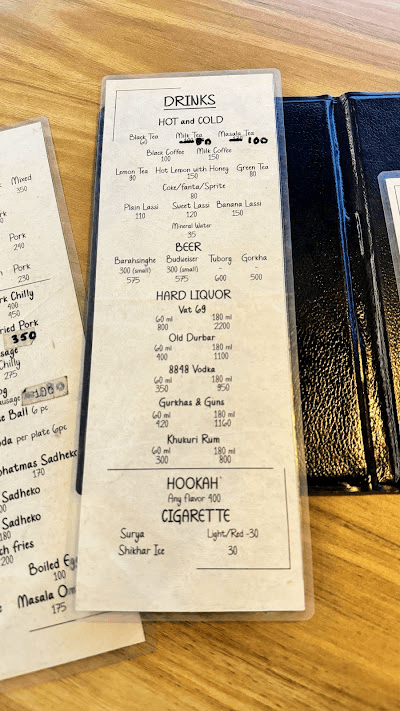 DRINKS
HOT and COLD
Black Tea Milk Tea Masala Tea
60 80 100
Black Coffee Milk Coffee
100 150
Lemon Tea Hot Lemon with Honey Green Tea
90 150 80
Coke/Fanta/Sprite
80
Plain Lassi Sweet Lassi Banana Lassi
110 120 150
Mineral Water
35
BEER
Barahsinghe Budweiser Tuborg Gorkha
300 (small) 300 (small) - -
575 575 600 500
HARD LIQUOR
Vat 69
60 ml 180 ml
800 2200
Old Durbar
60 ml 180 ml
400 1100
8848 Vodka
60 ml 180 ml
350 950
Gurkhas & Guns
60 ml 180 ml
420 1160
Khukuri Rum
60 ml 180 ml
300 800
HOOKAH
Any flavor 400
CIGARETTE
Surya Light/Red -30
Shikhar Ice 30
Mixed
350
Pork
240
Pork
230
rk Chilly
400
450
ried Pork
350
usage
Chilly
275
100
e Ball 6 pc
da per plate 6pc
hatmas Sadheko
170
Sadheko
Sadheko
180
ch fries
200
Boiled Eg
100
Masala Om
175